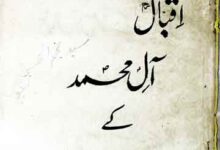 اقبالؒ
آلِ محمدؐ
کے